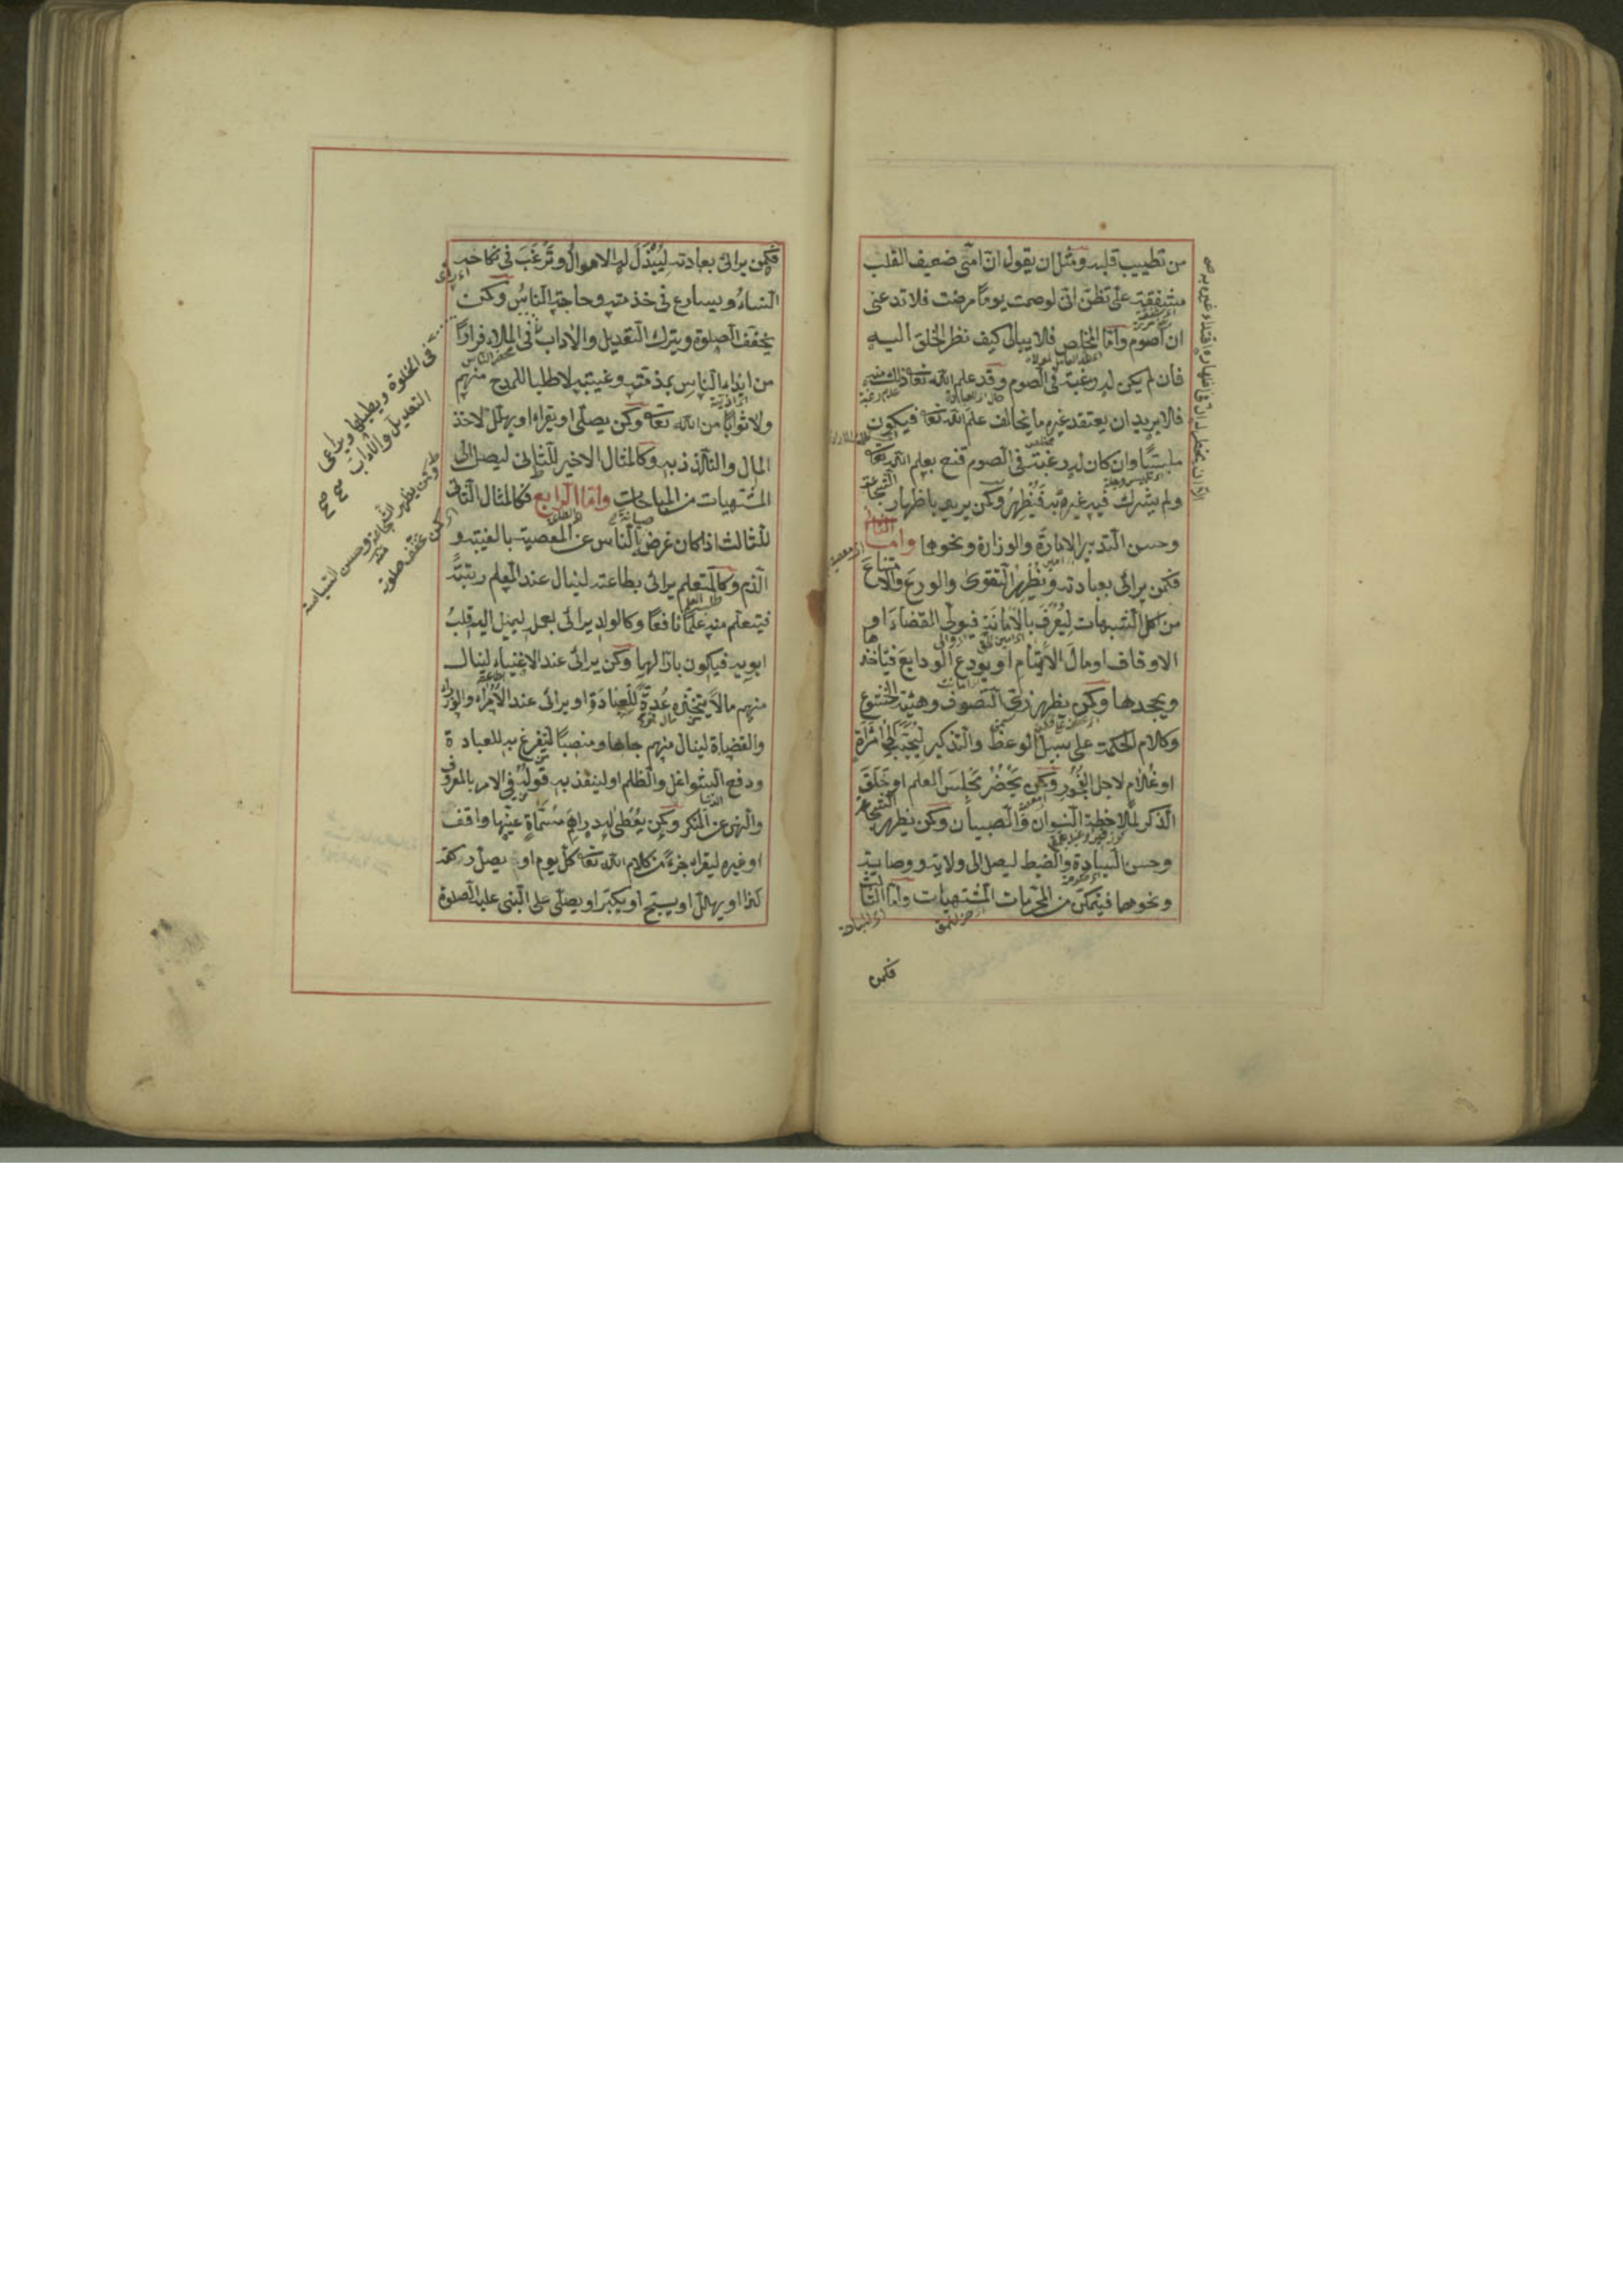 من تطييب قلبه ومثل ان يقول ان امى ضعيف القلب
مشفقة على تظن انى لوصمت يوما مرضت فلا تدعنى
ان اصوم واما المخلص فلا يبالى كيف نظر الخلق اليه
فان لم يكن له رغبة فى الصوم وقد علم الله تعا ذلك منه
فلا يريد ان يعتقد غيره ما يخالف علم الله تعا فيكون
ملبسا وان كان له رغبة فى الصوم قنع بعلم الله تعا
ولم يشرك فيه غيره وكمن يريد باظهار الشجاعة
وحسن التدبير الامارة والوزارة ونحوها واما الثانى
فكمن يرائى بعبادته ويظهر التقوى والورع والامتناع
من اكل الشبهات ليعرف بالامانة فيولى القضاء او
الاوقاف او مال الايتام او يودع الودايع فياخذها
ويجحدها وكمن يظهر زى التصوف وهيئة الخشوع
وكلام الحكمة على سبيل الوعظ والتذكير ليحبب الى امراة
او غلام لاجل الفجور وكمن يحضر مجلس العلم او حلق
الذكر لملاحظة النسوان والصبيان وكمن يظهر الشجاعة
وحسن السيادة والضبط ليصل الى ولاية ووصاية
ونحوهما فيتمكن من المحرمات المشتهيات واما الثالث
فكمن
فكمن يرائى بعبادته ليبذل له الاموال وترغب فى نكاحه
النساء ويسارع فى خدمته وحاجته الناس وكمن
يخفف الصلوة ويترك التعديل والاداب فى الملاء فرارا
من ايذاء الناس بمذمته وغيبته لا طلبا للمدح منهم
ولا ثوابا من الله تعا وكمن يصلى او يقراء او يهلل لاخذ
المال والتلذذ به وكالمثال الاخير للثانى ليصل الى
المشتهيات من المباحات واما الرابع فكالمثال الثانى
للثالث اذا كان غرضه صيانة الناس عن المعصية بالغيبة و
الذم وكالمتعلم يرائى بطاعته لينال عند المعلم رتبة
فيتعلم منه علما نافعا وكالولد يرائى بعمل ليميل اليه قلب
ابويه فيكون بارا لهما وكمن يرائى عند الاغنياء لينال
منهم مالا يتخذه عدة للعبادة او يرائى عند الامراء والوزراء
والقضاة لينال منهم جاها ومنصبا ليتفرغ به للعبادة
ودفع الشواغل والظلم او لينفذ به قوله فى الامر بالمعروف
والنهى عن المنكر وكمن يعطى له دراهم مسماة عينها واقف
او غيره ليقراء جزءا من كلام الله تعا كل يوم او يصلى ركعة
كذا او يهلل او يسبح او يكبر او يصلى على النبى عليه الصلوة
فى الخلوة ويطيلها ويراعى
التعديل والاداب صح صح
وكمن يظهر الشجاعة وحسن السياسة